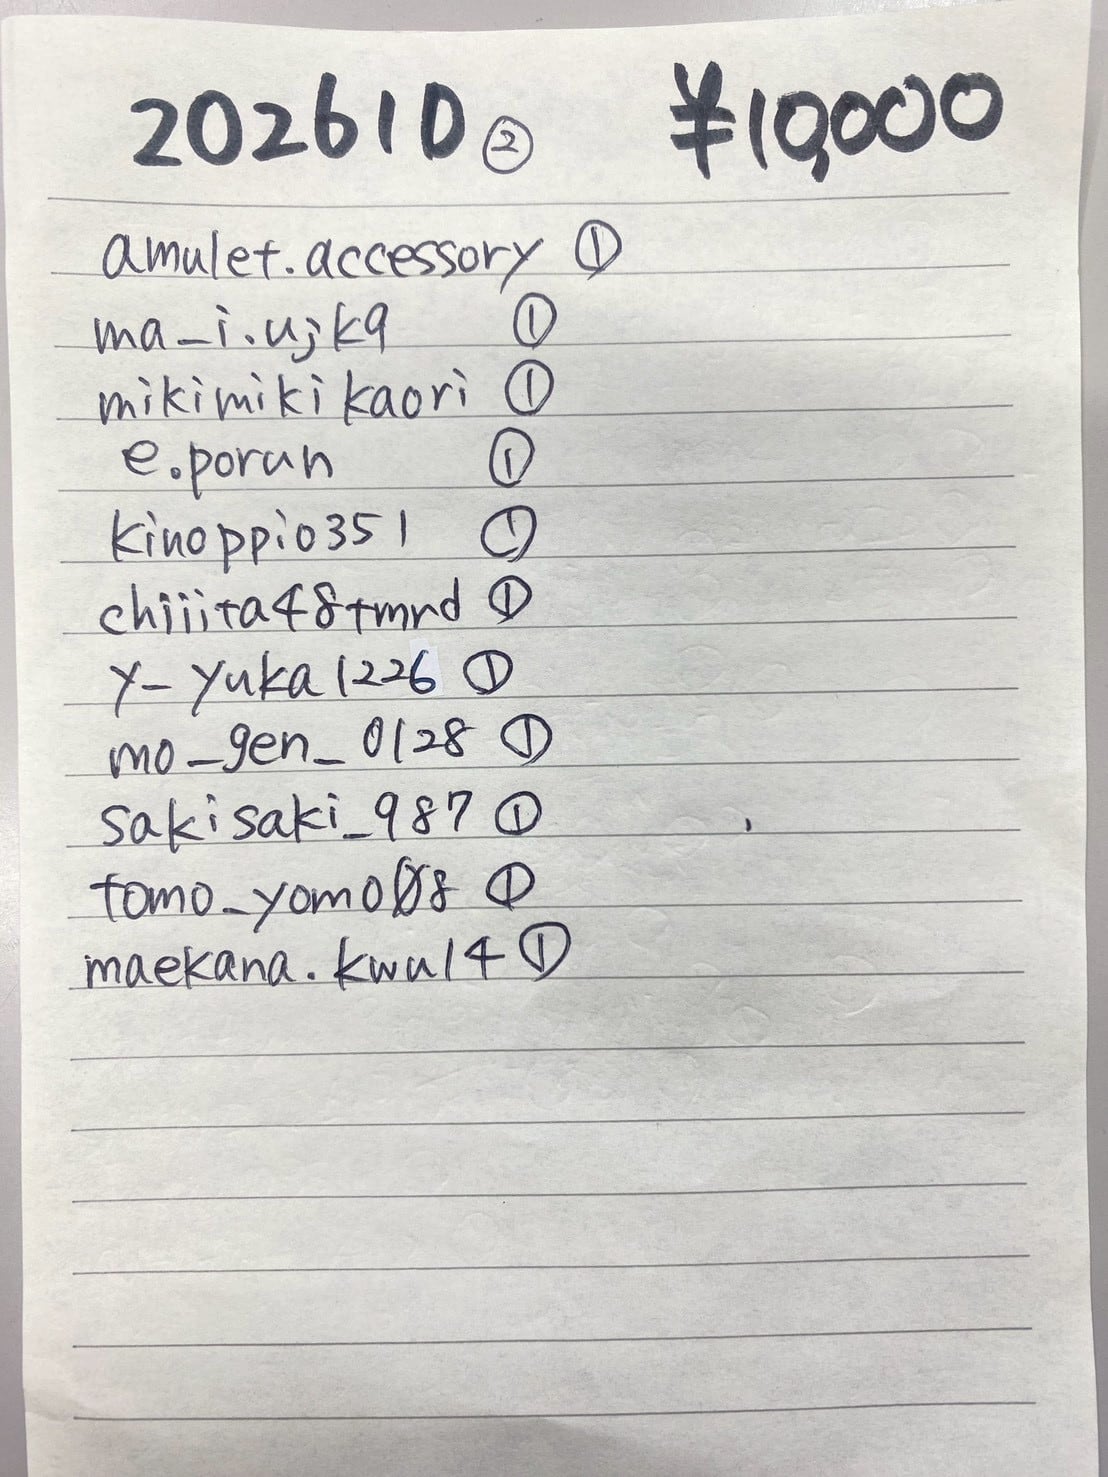 202610 ② ¥10,000
amulet.accessory ①
ma_i.ujk9 ①
mikimikikaori ①
e.porun ①
kinoppio351 ①
chiiita48tmrd ①
y_yuka1226 ①
mo_gen_0128 ①
sakisaki_987 ①
tomo_yomo08 ①
maekana.kwu14 ①